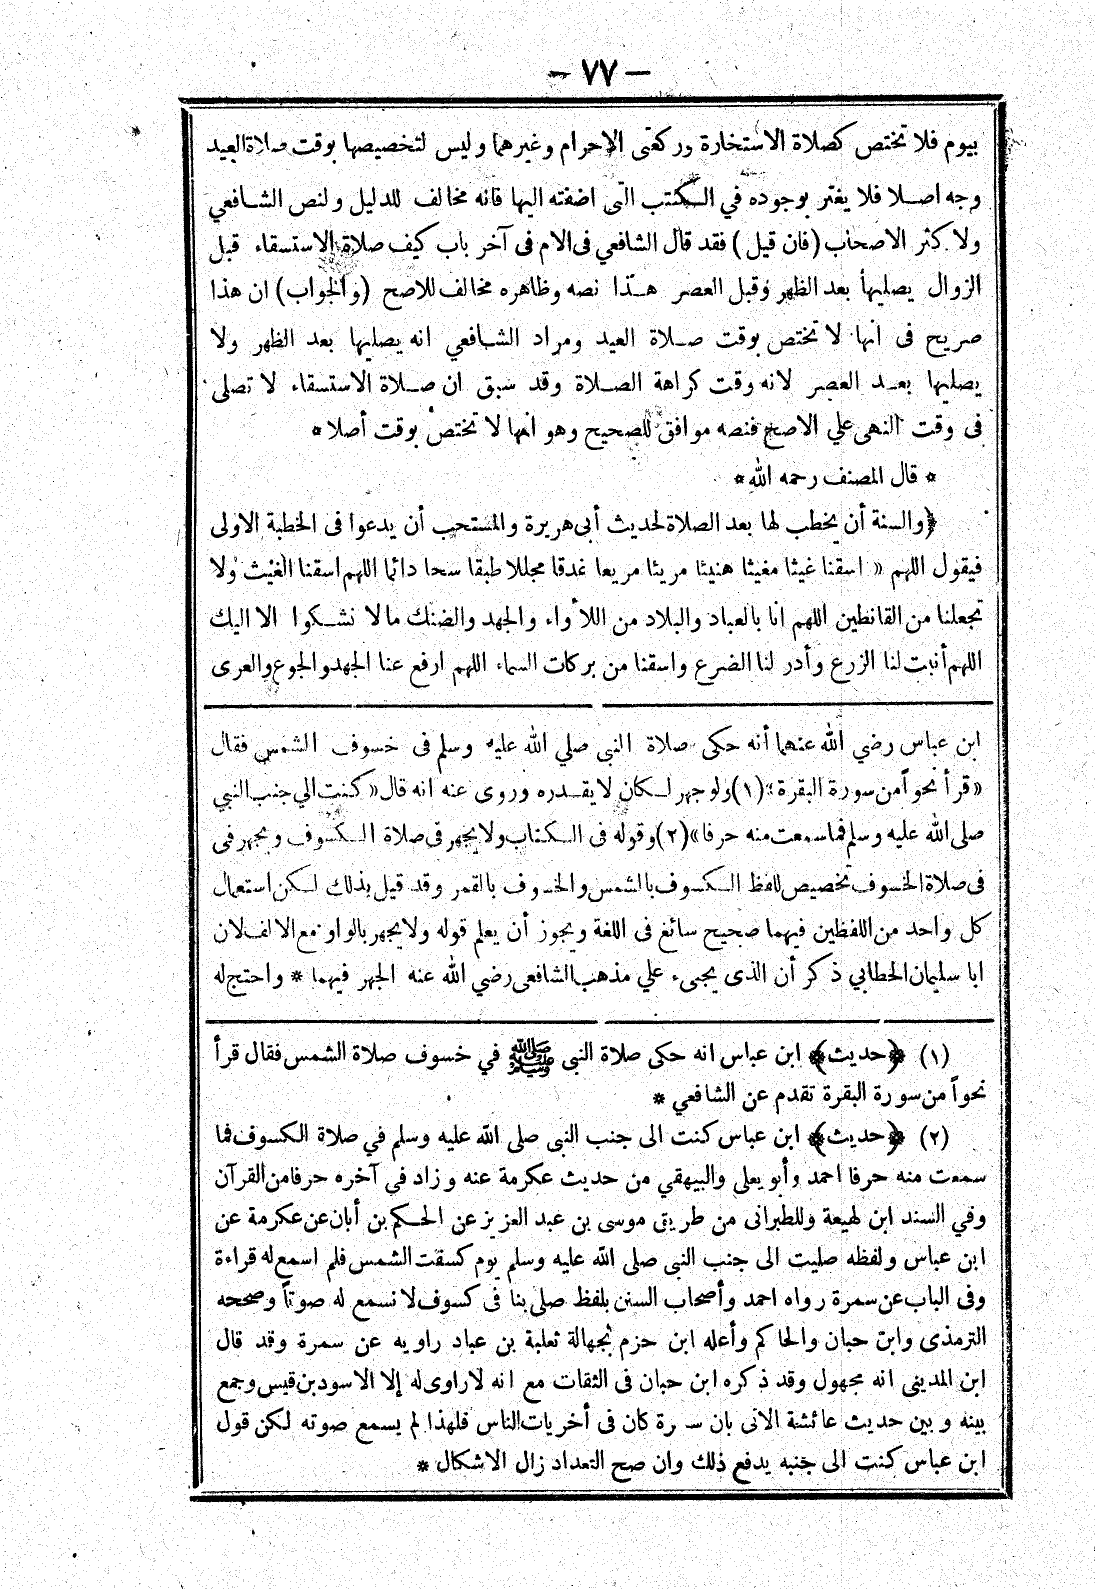 — ٧٧ —
بيوم فلا تختص كصلاة الاستخارة وركعتى الاحرام وغيرهما وليس لتخصيصها بوقت صلاة العيد
وجه اصلا فلا يغتر بوجوده في الكتب التى اضفته اليها فانه مخالف للدليل ولنص الشافعي
ولاكثر الاصحاب (فان قيل) فقد قال الشافعي فى الام فى آخر باب كيف صلاة الاستسقاء قبل
الزوال يصليها بعد الظهر وقبل العصر هذا نصه وظاهره مخالف للاصح (والجواب) ان هذا
صريح فى انها لا تختص بوقت صلاة العيد ومراد الشافعي انه يصليها بعد الظهر ولا
يصليها بعد العصر لانه وقت كراهة الصلاة وقد سبق ان صلاة الاستسقاء لا تصلى
فى وقت النهى علي الاصح فنصه موافق للصحيح وهو انها لا تختص بوقت أصلا *
* قال المصنف رحمه الله *
﴿والسنة أن يخطب لها بعد الصلاة لحديث أبى هريرة والمستحب أن يدعوا فى الخطبة الاولى
فيقول اللهم « اسقنا غيثا مغيثا هنيئا مريئا مريعا غدقا مجللا طبقا سحا دائما اللهم اسقنا الغيث ولا
تجعلنا من القانطين اللهم انا بالعباد والبلاد من اللأواء والجهد والضنك مالا نشكوا الا اليك
اللهم أنبت لنا الزرع وأدر لنا الضرع واسقنا من بركات السماء اللهم ارفع عنا الجهد والجوع والعرى
ابن عباس رضي الله عنهما أنه حكى صلاة النبى صلي الله عليه وسلم فى خسوف الشمس فقال
«قرأ نحواً من سورة البقرة» (١) ولو جهر لكان لا يقدره وروى عنه انه قال «كنت الي جنب النبي
صلى الله عليه وسلم فما سمعت منه حرفا» (٢) وقوله فى الكتاب ولا يجهر فى صلاة الكسوف ويجهر فى
فى صلاة الخسوف تخصيص للفظ الكسوف بالشمس والخسوف بالقمر وقد قيل بذلك لكن استعمال
كل واحد من اللفظين فيهما صحيح سائغ فى اللغة ويجوز أن يعلم قوله ولا يجهر بالواو مع الالف لان
ابا سليمان الخطابي ذكر أن الذى يجىء علي مذهب الشافعى رضي الله عنه الجهر فيهما * واحتج له
(١) ﴿حديث﴾ ابن عباس انه حكى صلاة النبى ﷺ في خسوف صلاة الشمس فقال قرأ
نحواً من سورة البقرة تقدم عن الشافعي *
(٢) ﴿حديث﴾ ابن عباس كنت الى جنب النبى صلى الله عليه وسلم في صلاة الكسوف فما
سمعت منه حرفا احمد وأبو يعلى والبيهقي من حديث عكرمة عنه وزاد في آخره حرفا من القرآن
وفي السند ابن لهيعة وللطبرانى من طريق موسى بن عبد العزيز عن الحكم بن أبان عن عكرمة عن
ابن عباس ولفظه صليت الى جنب النبى صلى الله عليه وسلم يوم كسفت الشمس فلم اسمع له قراءة
وفى الباب عن سمرة رواه احمد وأصحاب السنن بلفظ صلى بنا فى كسوف لا نسمع له صوتاً وصححه
الترمذى وابن حبان والحاكم وأعله ابن حزم بجهالة ثعلبة بن عباد راويه عن سمرة وقد قال
ابن المدينى انه مجهول وقد ذكره ابن حبان فى الثقات مع انه لاراوى له إلا الاسود بن قيس وجمع
بينه وبين حديث عائشة الآتى بان سمرة كان فى أخريات الناس فلهذا لم يسمع صوته لكن قول
ابن عباس كنت الى جنبه يدفع ذلك وان صح التعداد زال الاشكال *